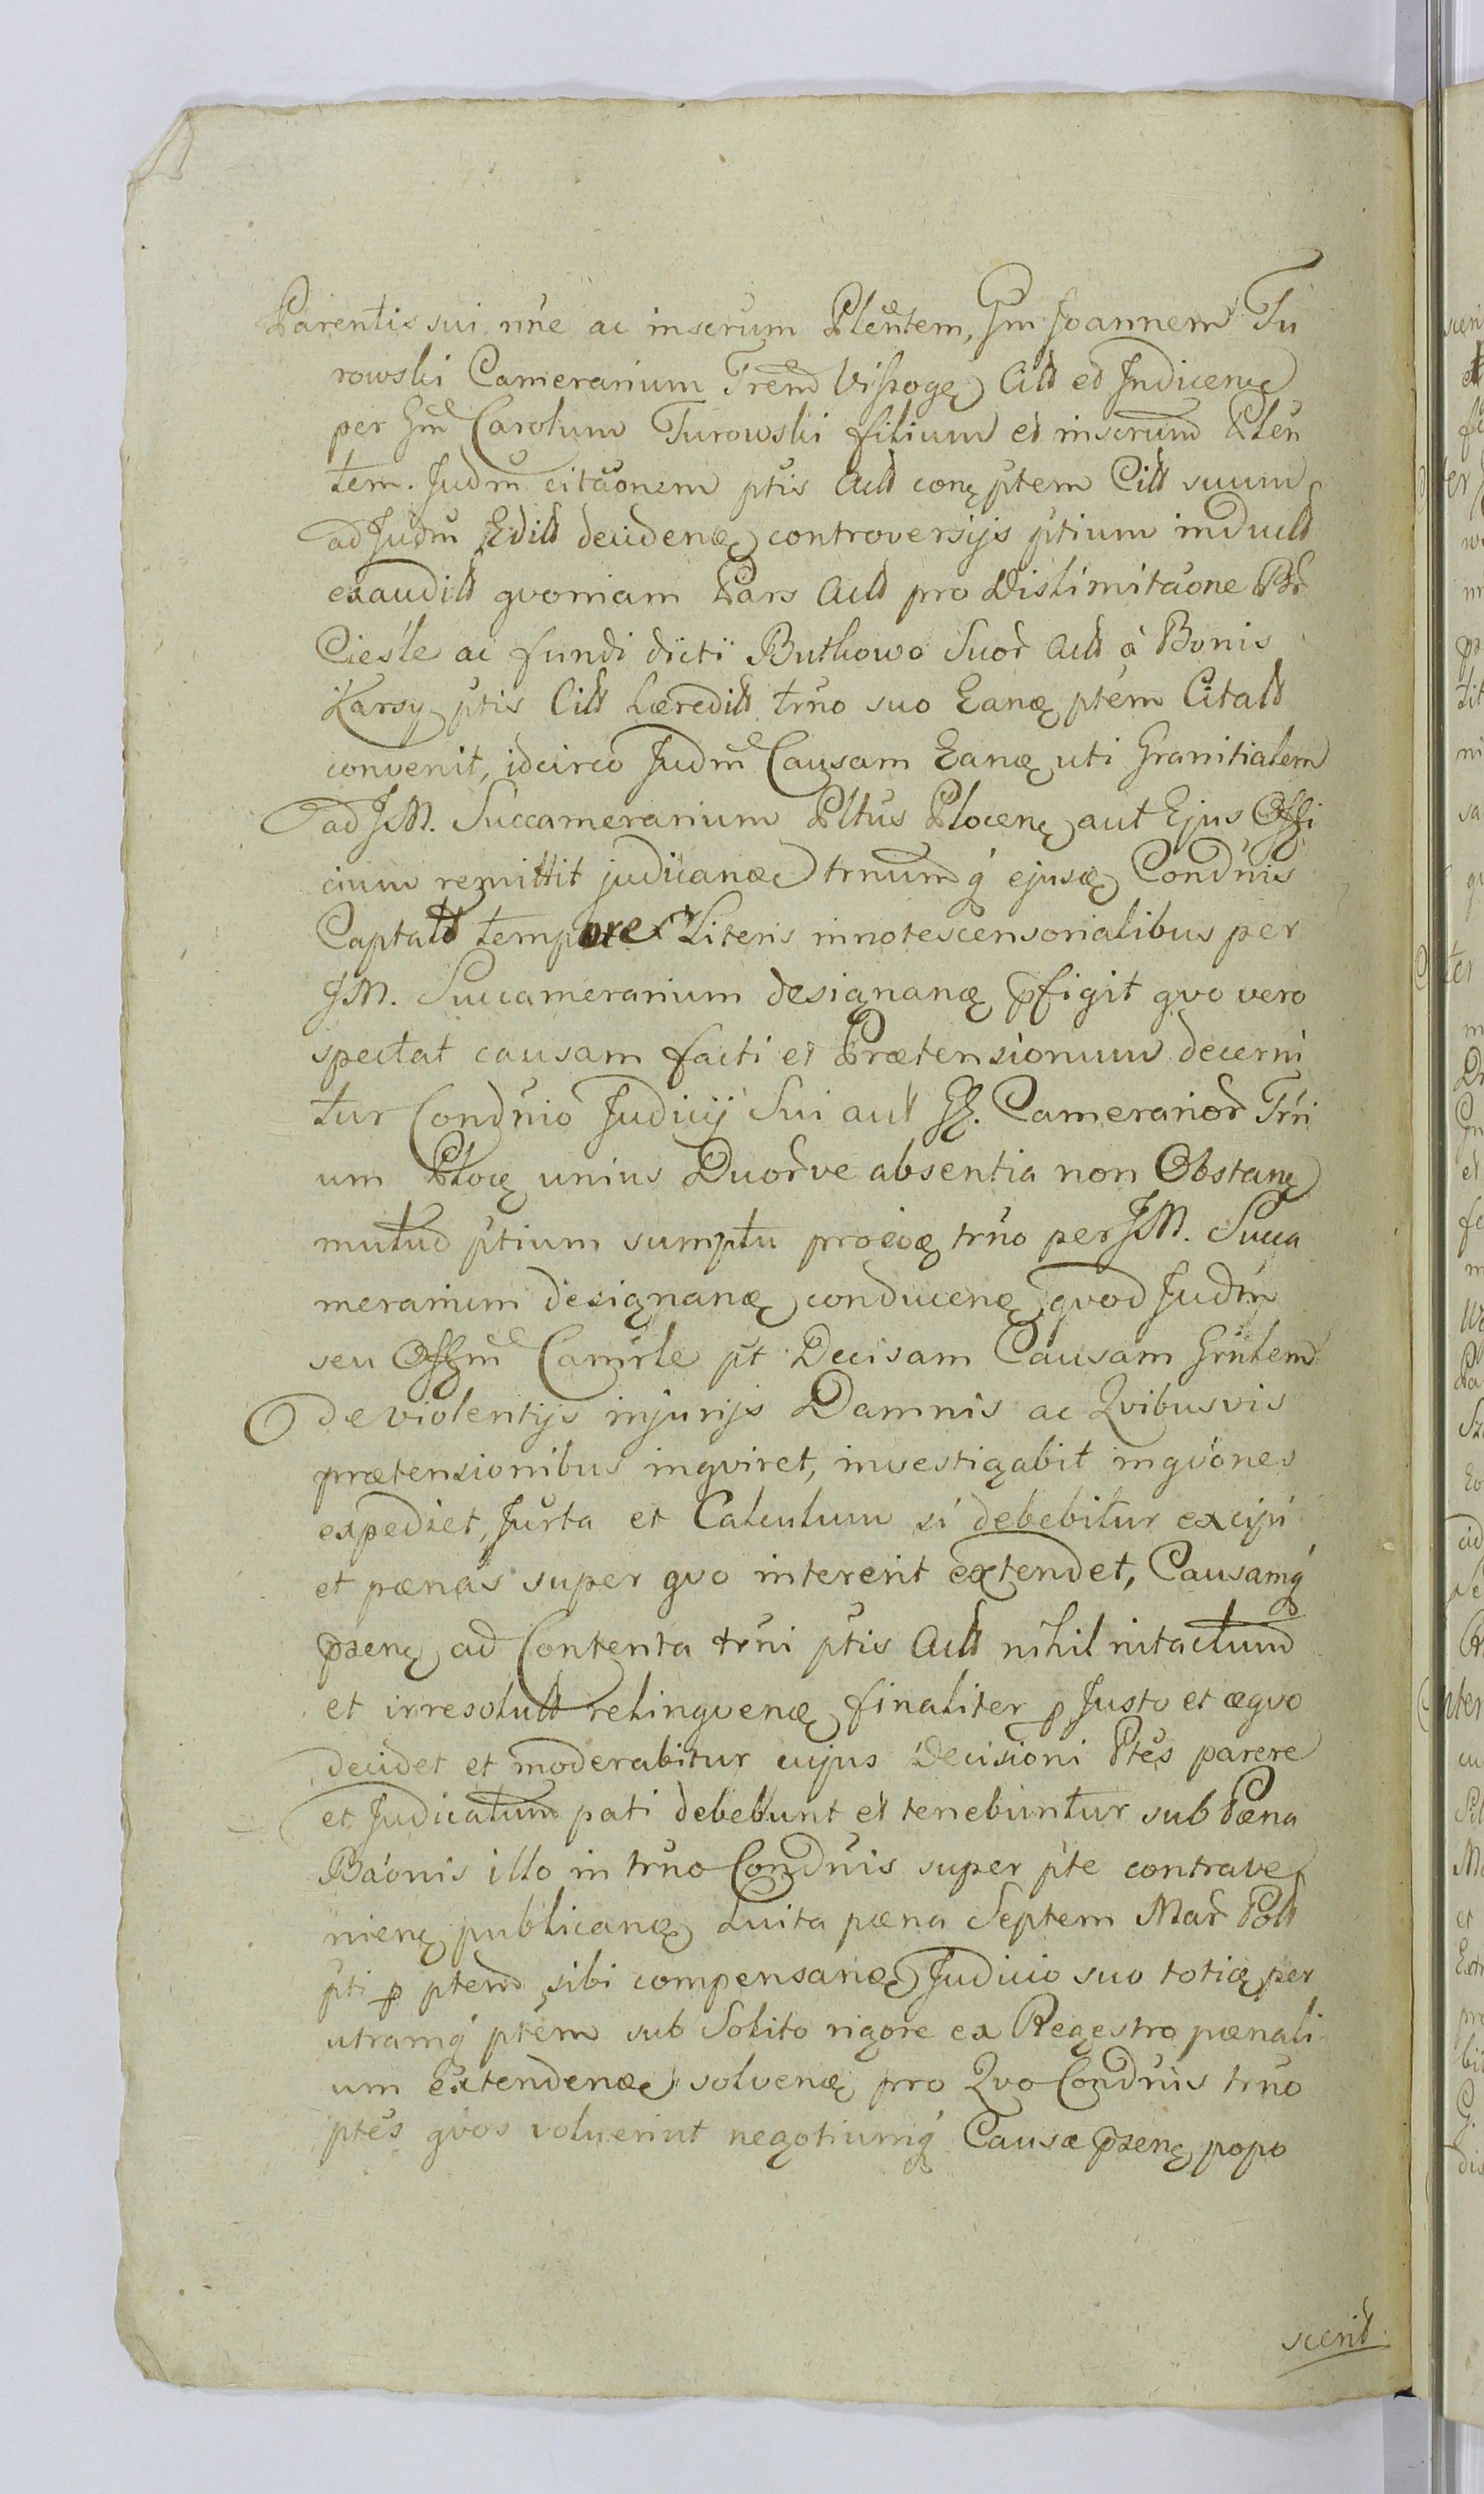 Parentis sui nne ac inscrum Plentem, Gm Joannem Tu
rowski Camerarium Trem Vissogę Citt ed Indicenę
per Gm Carolum Turowski filium et inscrum Plen
tem. Judm citaonem ptis Actt conę ptem Citt suum
ad Judm Editt decidenę controversijs ptium inductt
exauditt qvoniam Pars Actt pro Dislimitaone Br
Cieśle ac fundi dicti Buthowo Suor Actt à Bonis
Karsy ptis Citt hæreditt trno suo Eanę ptem Citatt
convenit, idcirco Judm Causam Eanę uti Granitialem
ad J.M. Succamerarium Pltus Plocenę aut Ejus Offi
cium remittit judicanę trnumq ejusę Condnis
Captatt tempore Literis innotescensorialibus per
J.M. Succamerarium designanę pfigit qvo vero
spectat causam facti et Prætensionum decerni
tur Condnio Judicij Sui aut GG. Camerarior Trri
um Plocę unius Duorve absentia non Obstanę
mutuo ptium sumptu proeoę trno per J.M. Succa
merarium designanę conducenę qvod Judm
seu Offm Camrle pt Decisam Causam Grnlem
de violentijs injurijs Damnis ac Qvibusvis
prætensionibus inqviret, investigabit inqvones
expediet, Jurta et Calculum si debebitur excipi
et pænas super qvo intererit extendet, Causamq
pzenę ad Contenta trni ptis Actt nihil intactum
et irresolutt relinqvenę finaliter p Justo et æqvo
decidet et moderabitur cujus Decisioni Ptes parere
et Judicatum pati debebunt et tenebuntur sub Pæna
Baonis illo in trno Condnis super pte contrave
nienę publicanę Luita pæna Septem Mar Poll
pti p ptem sibi compensanę Judicio suo totię per
utramq ptem sub Solito rigore ex Regestro pænali
um Extendenę solvenę pro Qvo Condnis trno
ptes qvos voluerint negotiumq Causæ pzenę popo
scerit